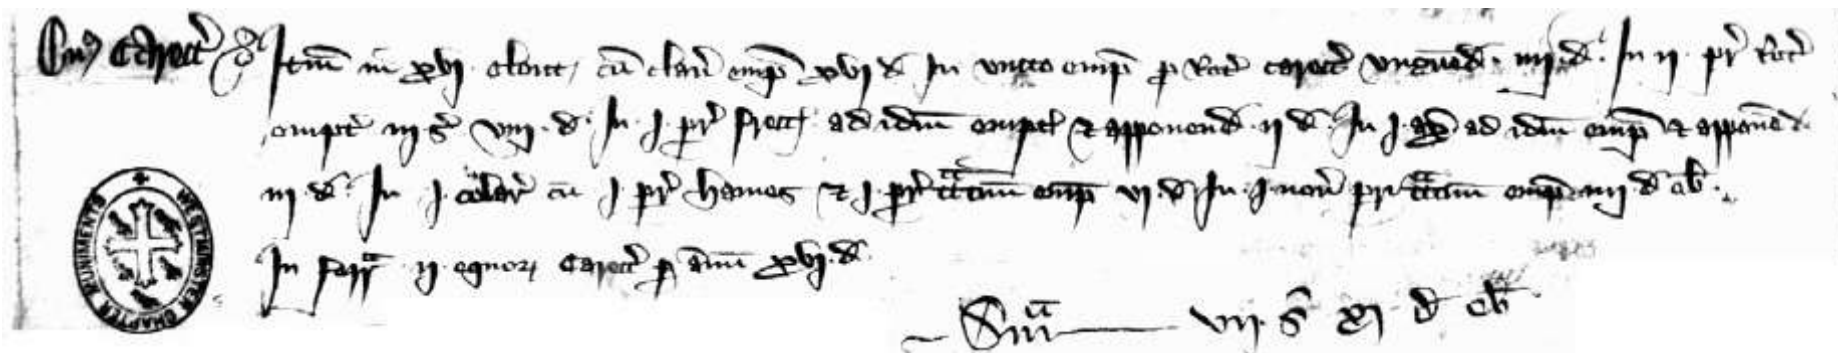 Cust Carect Itm in xvj clout cu clav emp xvj d In uncto emp p Rot carect ungend iiij d In ij pr Rot
empt iij s viij d In j pr frect ad idm empt & apponend ij d In j ax ad idm emp & apponend
iij d In j colar cu j pr hames & j pr tractuu emp vj d In j nov pari tractuu emp iiij d ob
In ferr ij equor carect p annu xvj d
Sma vij s xj d ob
WESTMINSTER CHAPTER MUNIMENTS